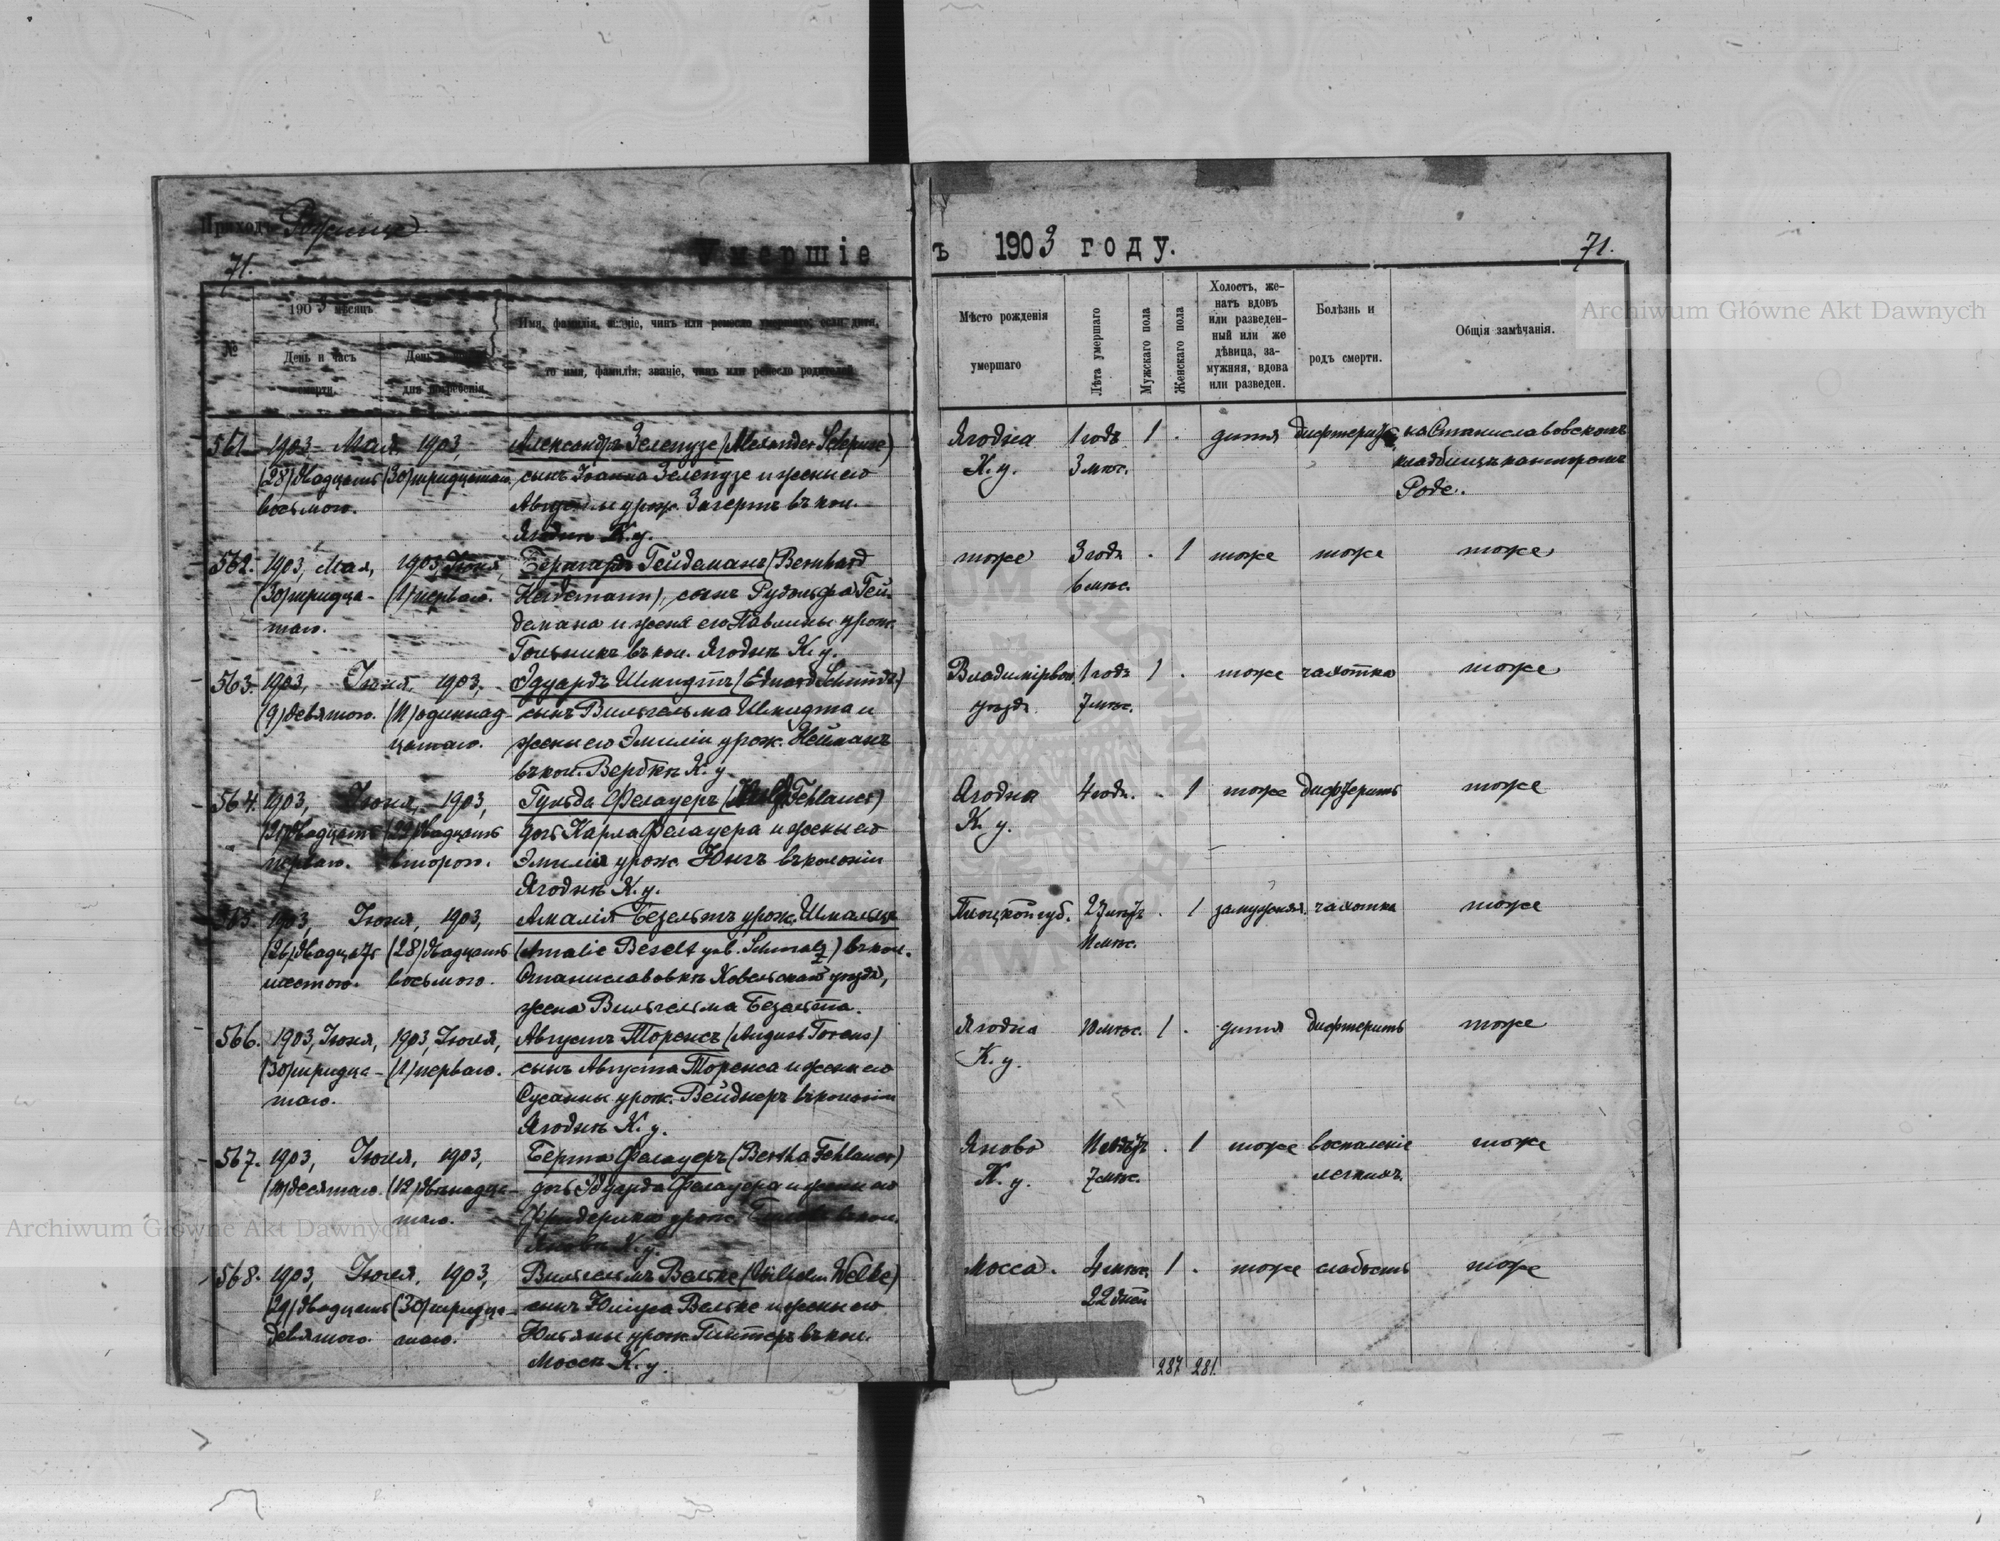 Приходъ Рожище
Умершіе
ъ 1903 году.
71.
71.
№
1903 мѣсяцъ
День и часъ смерти.
День и
дня погребенія.
Имя, фамилія, званіе, чинъ или ремесло умершаго; если дитя,
то имя, фамилія, званіе, чинъ или ремесло родителей
Мѣсто рожденія
умершаго
Лѣта умершаго
Мужскаго пола
Женскаго пола
Холостъ, же-
натъ вдовъ
или разведен-
ный или же
дѣвица, за-
мужняя, вдова
или разведен.
Болѣзнь и
родъ смерти.
Общія замѣчанія.
Archiwum Główne Akt Dawnych
561. 1903, Мая, 1903, Александръ Зелепузе (Alexander Selepuse) Ягодна 1 годъ 1 . дитя дифтеритъ на Станиславовскомъ
(28) двадцать (30) тридцатаго, сынъ Іоанна Зелепузе и жены его К. у. 3 мѣс. кладбищѣ канторомъ
восьмого. урож. въ кол. Роде.
Ягоднѣ К. у.
562. 1903, Мая, 1903, Іюня, Бернгардъ Гейдеманъ (Bernhard тоже 3 года . 1 тоже тоже тоже
(30) тридца- (1) перваго. Heidemann), сынъ Рудольфа Гей- 6 мѣс.
таго. демана и жены его Павлины урож.
въ кол. Ягоднѣ К. у.
563. 1903, Іюня, 1903, Эдуардъ Шмидтъ (Eduard Schmidt) 1 годъ 1 . тоже чахотка тоже
(9) девятого. (11) одиннад- сынъ Вильгельма Шмидта и уѣзда 7 мѣс.
цатаго. жены его Эмиліи урож. Нейманъ
въ кол. Вербкѣ К. у.
564. 1903, Іюня, 1903, Гульда Фелауеръ (Fehlauer) Ягодна 4 года. . 1 тоже дифтеритъ тоже
(21) двадцать (22) двадцать дочь Карла Фелауера и жены его К. у.
перваго. второго. Эмиліи урож. Юнгъ въ колоніи
Ягоднѣ К. у.
565. 1903, Іюня, 1903, Амалія Безельтъ урож. Шмальцъ Плоцкой губ. . 1 замужняя. чахотка тоже
(26) двадцать (28) двадцать (Amalie Beselt geb. Schmalz) въ кол. 11 мѣс.
шестого. восьмого. Станиславовкѣ Ковельскаго уѣзда,
жена Вильгельма Безельта.
566. 1903, Іюня, 1903, Іюля, Августъ Торенсъ (August Torens) Ягодна 10 мѣс. 1 . дитя дифтеритъ тоже
(30) тридца- (1) перваго. сынъ Августа Торенса и жены его К. у.
таго. Сусанны урож. Вейднеръ въ колоніи
Ягоднѣ К. у.
567. 1903, Іюля, 1903, Берта Фелауеръ (Bertha Fehlauer) Яново . 1 тоже воспаленіе тоже
(10) десятаго. (12) двѣнадца- дочь Эдуарда Фелауера и жены его К. у. 7 мѣс. легкихъ.
таго. Фридерики урож. въ кол.
Яновѣ К. у.
568. 1903, Іюля, 1903, Вильгельмъ Вельке (Wilhelm Welke) Мосса. 4 мѣс. 1 . тоже слабость тоже
(29) двадцать (30) тридца- сынъ Юліуса Вельке и жены его 22 дней
девятого. таго. Юльяны урож. въ кол.
Моссѣ К. у.
287 281.
Archiwum Główne Akt Dawnych